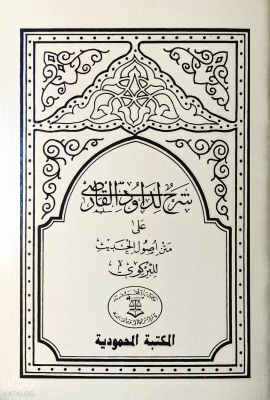 شرح لداود القارصي
على
متن أصول الحديث
للبركوي
المكتبة المحمودية
KATALOG